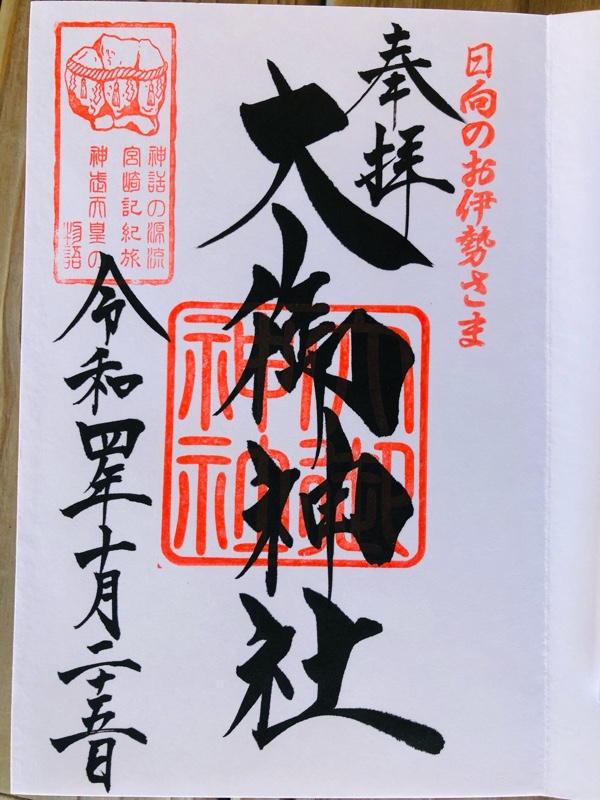 日向のお伊勢さま
奉拝
大御神社
大御
神社
神話の源流
宮崎記紀旅
神武天皇の
物語
令和四年十月二十五日